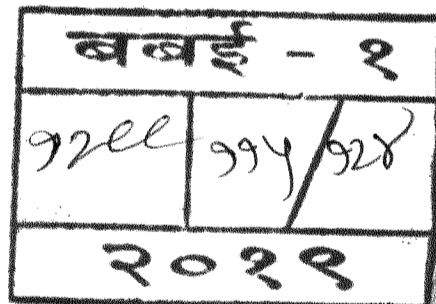 बबई - १
१२९९ ११५/१२४
२०१९